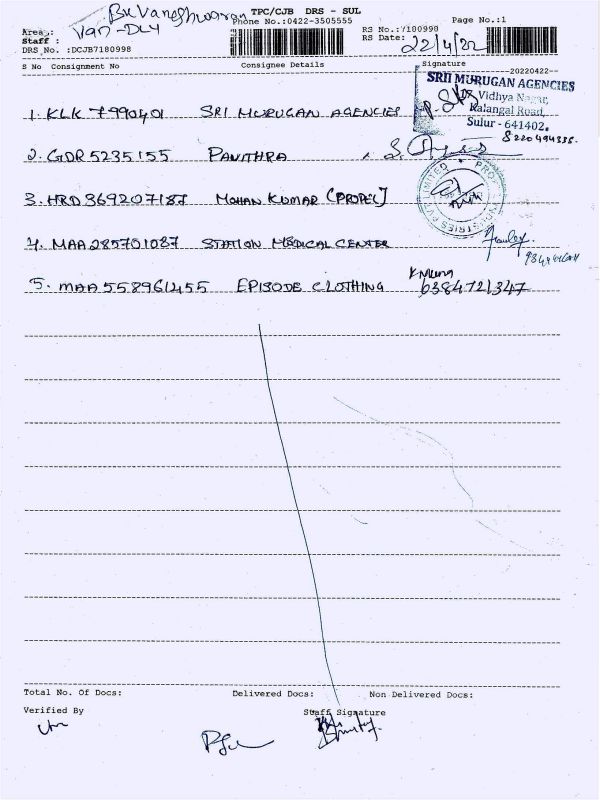 Buvaneshwaran
TPC/CJB DRS - SUL
Page No.:1
Area :
Van-DLY
Phone No.:0422-3505555
RS No.:7180998
Staff :
RS Date:
22/4/22
DRS No. :DCJB7180998
--20220422--
S No Consignment No Consignee Details Signature
1. KLK 7990401 SRI MURUGAN AGENCIES
SRII MURUGAN AGENCIES
Vidhya Nagar,
Kalangal Road,
Sulur - 641402.
8220494336.
2. GDR 5235155 PAVITHRA
3. HRD 369207187 MOHAN KUMAR (PROPEL)
4. MAA 285701087 STATION MEDICAL CENTER
5. MAA 558961455 EPISODE CLOTHING
6384721347
Total No. Of Docs: Delivered Docs: Non Delivered Docs:
Verified By Staff Signature